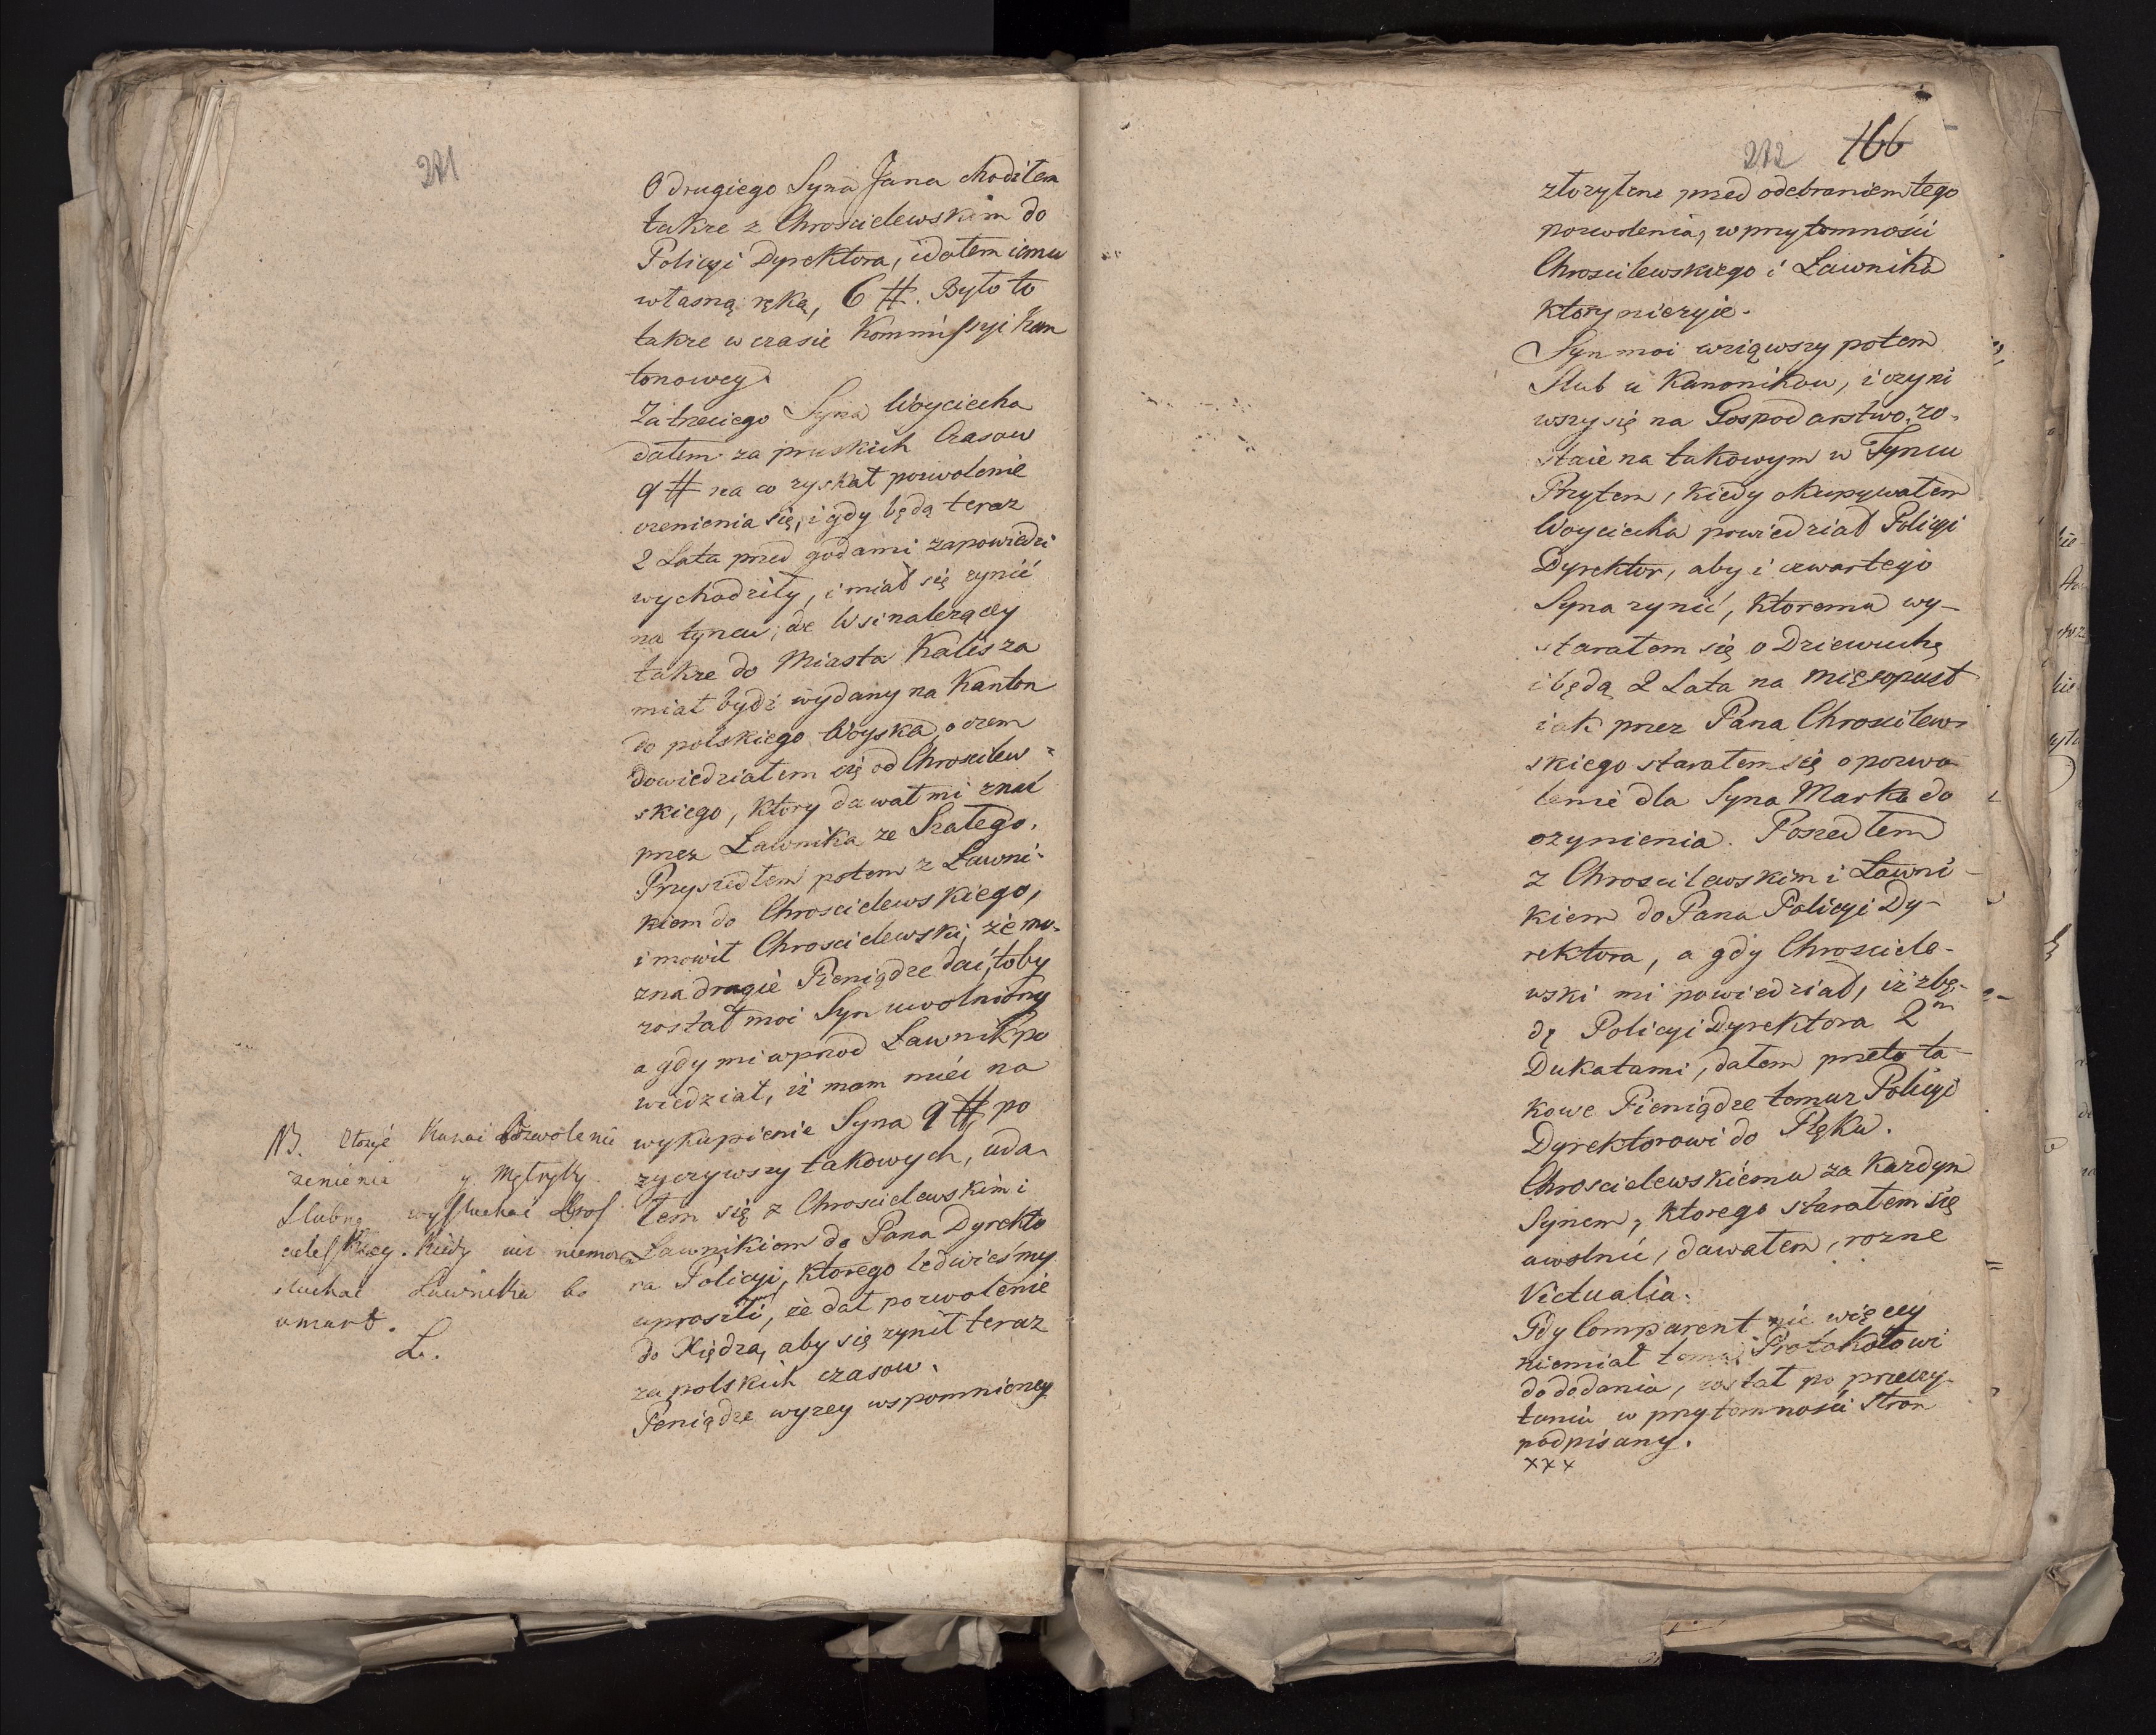 271
O drugiego Syna Jana chodziłem
takze z Chroscielewskim do
Policyi Dyrektora, i dałem iemu
własną ręką, 6 #. Było to
takze w czasie Kommissyi Kan
tonowey.
Za trzeciego Syna Woyciecha
dałem za pruskich Czasow
9 # na co zyskał pozwolenie
ozenienia się, i gdy będą teraz
2 Lata przed godami zapowiedzi
wychodziły, i miał się zynić
na tyncu, ze Wsi nalezący
takze do Miasta Kalisza
miał bydź wydany na Kanton
do polskiego Woyska, o czem
dowiedziałem się od Chroscilew=
skiego, ktory dawał mi znać
przez Ławnika ze Szałego.
Przyszedłem potem z Ławni-
kiem do Chroscielewskiego,
i mowił Chroscielewski, że mo-
zna drugie Pieniądze dać, toby
został moi Syn uwolniony
a gdy mi wprzod Ławnik po
wiedział, iż mam mieć na
wykupienie Syna 9 #, po
zyczywszy takowych, uda-
łem się z Chroscielewskim i
Ławnikiem do Pana Dyrekto
ra Policyi, ktorego ledwieśmy
uprosili, że dał pozwolenie
do Xiędza, aby się zynił teraz
za polskich czasow.
Pieniądze wyzey wspomnioney
NB. Złozyć Kazać Pozwolenie
zenienie y Metryky
Slubną wysłuchac Chros
cielesKiey. Kiedy iuz niemozna
słuchac Ławnika bo
umarł.
L.
272 166
złozyłem przed odebraniem tego
pozwolenia, w przytomności
Chroscilewskiego i Ławnika
ktory niezyie.
Syn moi wziąwszy potem
Slub u Kanonikow, i ozyni
wszy się na Gospodarstwo, zo-
staie na takowym w Tyncu
Przytem, kiedy okupywałem
Woyciecha powiedział Policyi
Dyrektor, aby i czwartego
Syna zynić, ktoremu wy-
starałem się o Dziewuchę
i będą 2 Lata na mięsopust
iak przez Pana Chroscilew-
skiego starałem się o pozwo
lenie dla Syna Marka do
ozynienia. Poszedłem
z Chroscilewskim i Ławni-
kiem do Pana Policyi Dy-
rektora, a gdy Chrosciele-
wski mi powiedział, iż zbę-
dę Policyi Dyrektora 2m
Dukatami, dałem przeto ta-
kowe Pieniądze temuz Policyi
Dyrektorowi do Ręku.
Chroscielewskiemu za Kazdym
Synem, ktorego starałem się
uwolnić, dawałem, rozne
Victualia.
Gdy Comparent nic więcey
niemiał temu Protokołowi
do dodania, został po przeczy-
taniu w przytomności Stron
podpisany.
xxx